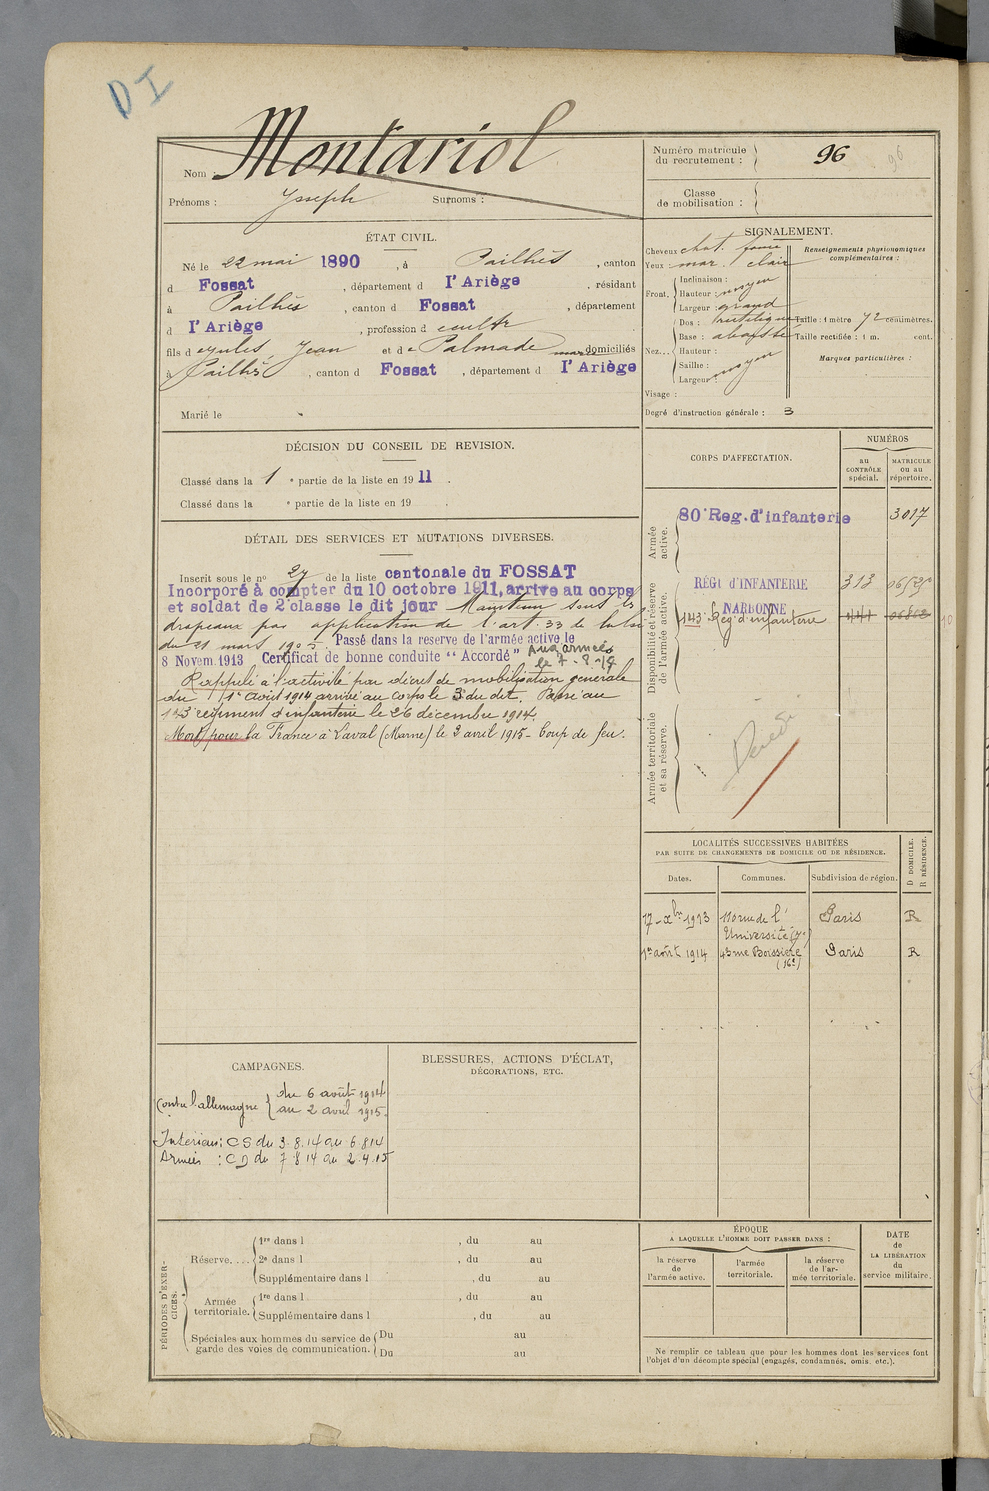 D I
Nom Montariol
Prénoms : Joseph Surnoms :
Numéro matricule du recrutement : 96
96
Classe de mobilisation :
ÉTAT CIVIL.
Né le 22 mai 1890, à Pailhès, canton
d Fossat, département d l'Ariège, résidant
à Pailhès, canton d Fossat, département
d l'Ariège, profession d cultr
fils d Jean et d e Palmade domiciliés
à Pailhès, canton d Fossat, département d l'Ariège
Marié le
SIGNALEMENT.
Cheveux chat. foncé
Yeux : mar. clair
Front. Inclinaison :
Hauteur : moyen
Largeur : grand
Nez... Dos : rectiligne
Base : abaissé
Hauteur :
Saillie : moyen
Largeur :
Visage :
Renseignements physionomiques complémentaires :
Taille : 1 mètre 72 centimètres.
Taille rectifiée : 1 m. cent.
Marques particulières :
Degré d'instruction générale : 3
DÉCISION DU CONSEIL DE REVISION.
Classé dans la 1 e partie de la liste en 1911.
Classé dans la e partie de la liste en 19 .
DÉTAIL DES SERVICES ET MUTATIONS DIVERSES.
Inscrit sous le n° 27 de la liste cantonale du FOSSAT
Incorporé à compter du 10 octobre 1911, arrive au corps
et soldat de 2e classe le dit jour Maintenu sous les
drapeaux par application de l'art. 33 de la loi
du 21 mars 1905. Passé dans la reserve de l'armée active le
8 Novem. 1913 Certificat de bonne conduite "Accordé" Aux armées
le 7-8-14
Rappelé à l'activité par décret de mobilisation générale
du 1er Août 1914 arrivé au corps le 3 du dit. Passé au
143e régiment d'infanterie le 26 décembre 1914.
Mort pour la France à Laval (Marne) le 2 avril 1915 - Coup de feu.
CORPS D'AFFECTATION.
NUMÉROS
au CONTRÔLE spécial.
MATRICULE ou au répertoire.
Armée active.
80e Reg. d'infanterie 3017
Disponibilité et réserve de l'armée active.
RÉGt d'INFANTERIE 313
NARBONNE
143e Rég. d'infanterie
Armée territoriale et sa réserve.
Décédé
LOCALITÉS SUCCESSIVES HABITÉES
PAR SUITE DE CHANGEMENTS DE DOMICILE OU DE RÉSIDENCE.
D DOMICILE.
R RÉSIDENCE.
Dates. Communes. Subdivision de région.
17 - Xbre 1913 110 rue de l' Paris R
Université (7e)
1er août 1914 43 rue Boissière Paris R
(16e)
CAMPAGNES.
Contre l'allemagne du 6 août 1914
au 2 avril 1915.
Intérieur : CS du 3.8.14 au 6.8.14
Armées : CD du 7.8.14 au 2.4.15
BLESSURES, ACTIONS D'ÉCLAT,
DÉCORATIONS, ETC.
PÉRIODES D'EXERCICES.
Réserve.... 1re dans l , du au
2e dans l , du au
Supplémentaire dans l , du au
Armée territoriale. 1re dans l , du au
Supplémentaire dans l , du au
Spéciales aux hommes du service de garde des voies de communication. Du au
Du au
ÉPOQUE
A LAQUELLE L'HOMME DOIT PASSER DANS :
la réserve de l'armée active.
l'armée territoriale.
la réserve de l'armée territoriale.
DATE de LA LIBÉRATION du service militaire.
Ne remplir ce tableau que pour les hommes dont les services font
l'objet d'un décompte spécial (engagés, condamnés, omis, etc.).